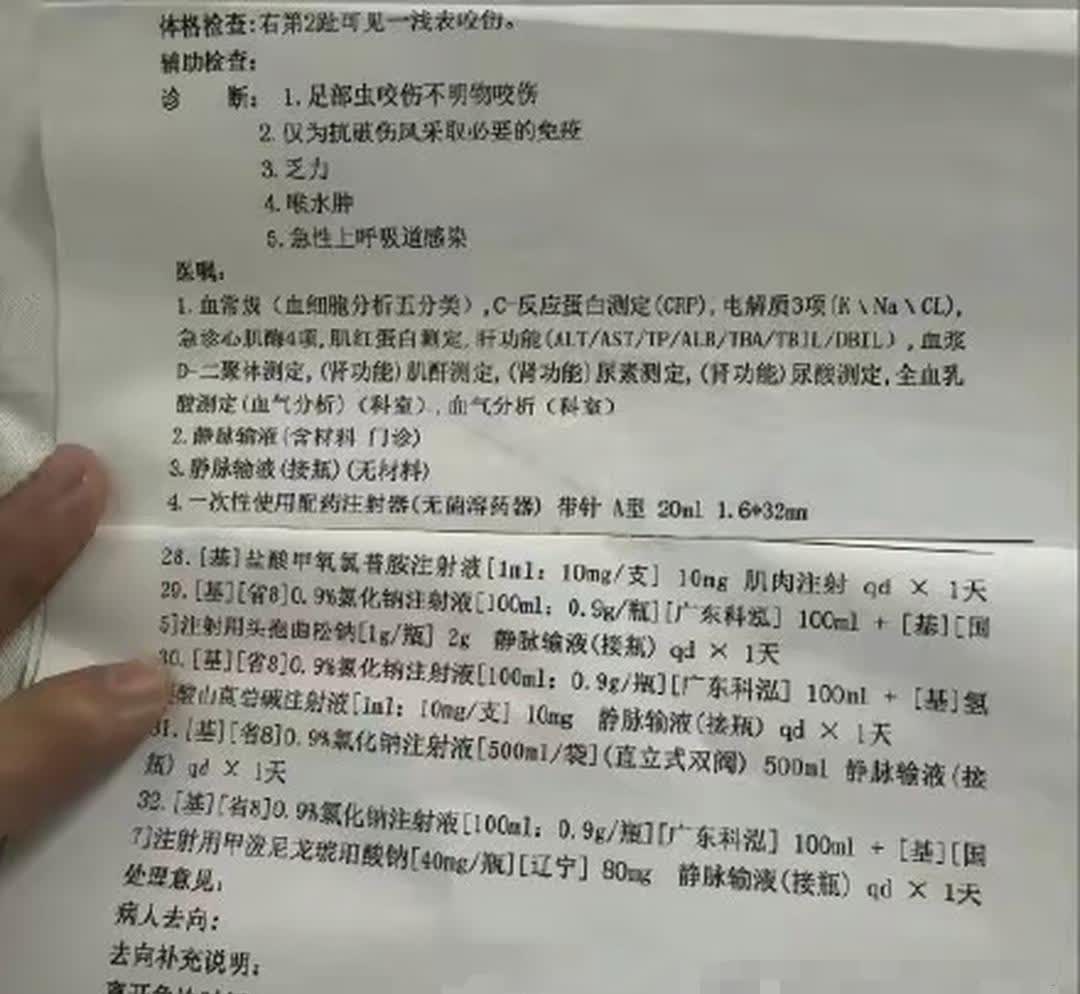 体格检查:右第2趾可见一浅表咬伤。
辅助检查:
诊 断: 1.足部虫咬伤不明物咬伤
2.仅为抗破伤风采取必要的免疫
3.乏力
4.喉水肿
5.急性上呼吸道感染
医嘱:
1.血常规(血细胞分析五分类),C-反应蛋白测定(CRP),电解质3项(K\Na\CL),
急诊心肌酶4项,肌红蛋白测定,肝功能(ALT/AST/TP/ALB/TBA/TBIL/DBIL),血浆
D-二聚体测定,(肾功能)肌酐测定,(肾功能)尿素测定,(肾功能)尿酸测定,全血乳
酸测定(血气分析)(科室),血气分析(科室)
2.静脉输液(含材料 门诊)
3.静脉输液(接瓶)(无材料)
4.一次性使用配药注射器(无菌溶药器) 带针 A型 20ml 1.6*32mm
28.[基]盐酸甲氧氯普胺注射液[1ml: 10mg/支] 10mg 肌肉注射 qd × 1天
29.[基][省8]0.9%氯化钠注射液[100ml: 0.9g/瓶][广东科泓] 100ml + [基][国
5]注射用头孢曲松钠[1g/瓶] 2g 静脉输液(接瓶) qd × 1天
30.[基][省8]0.9%氯化钠注射液[100ml: 0.9g/瓶][广东科泓] 100ml + [基]氢
酸山莨菪碱注射液[1ml: 10mg/支] 10mg 静脉输液(接瓶) qd × 1天
31.[基][省8]0.9%氯化钠注射液[500ml/袋](直立式双阀) 500ml 静脉输液(接
瓶) qd × 1天
32.[基][省8]0.9%氯化钠注射液[100ml: 0.9g/瓶][广东科泓] 100ml + [基][国
7]注射用甲泼尼龙琥珀酸钠[40mg/瓶][辽宁] 80mg 静脉输液(接瓶) qd × 1天
处理意见:
病人去向:
去向补充说明: